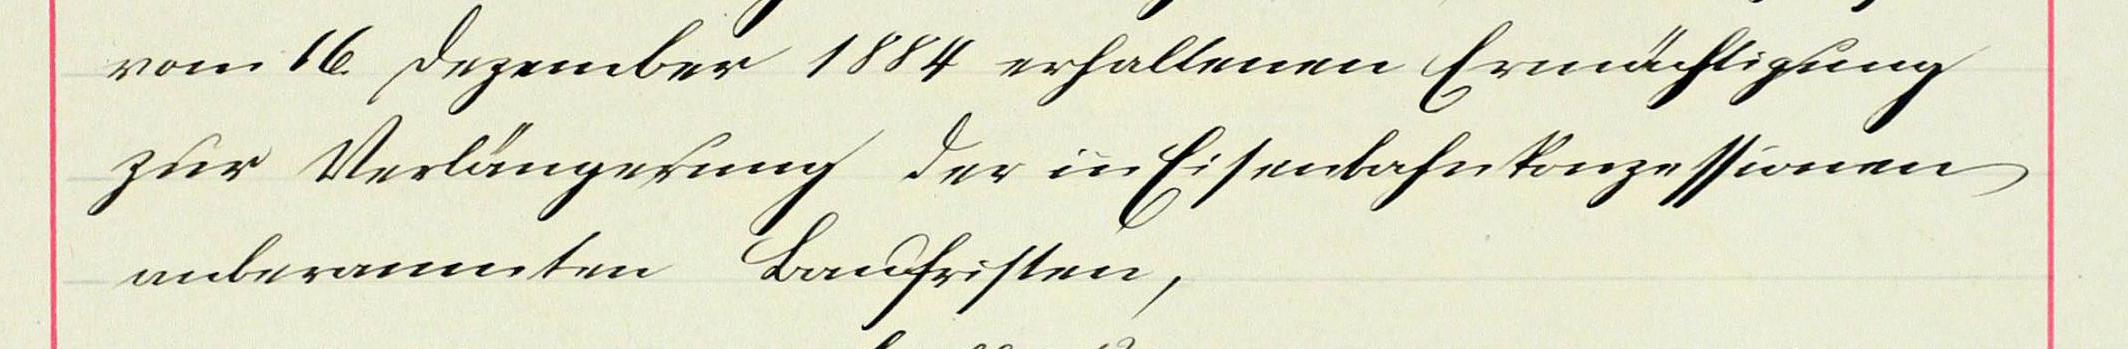 vom 16. Dezember 1884 erhaltenen Ermächtigung
zur Verlängerung der in Eisenbahnkonzessionen
anberaumten Baufristen,